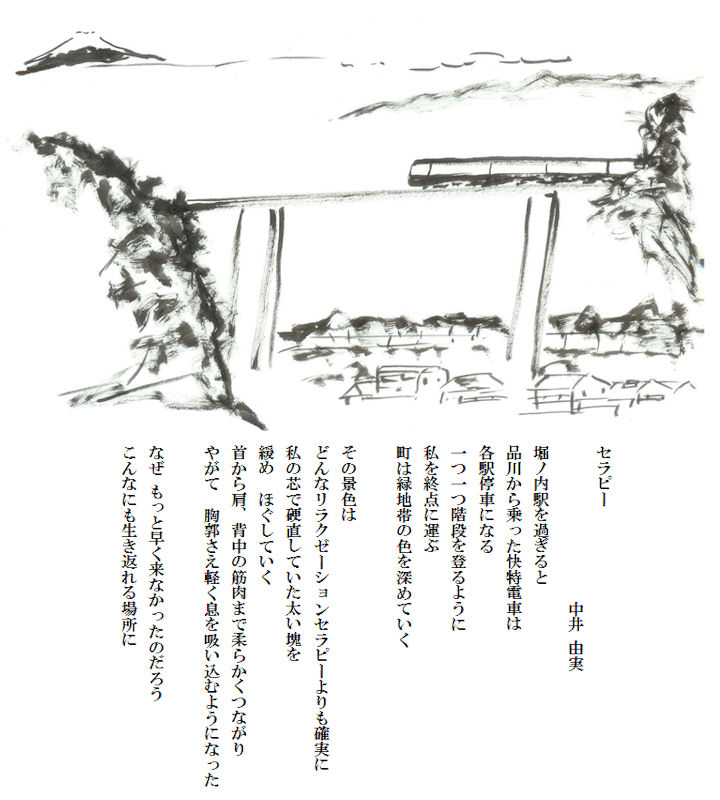 セラピー
中井　由実
堀ノ内駅を過ぎると
品川から乗った快特電車は
各駅停車になる
一つ一つ階段を登るように
私を終点に運ぶ
町は緑地帯の色を深めていく
その景色は
どんなリラクゼーションセラピーよりも確実に
私の芯で硬直していた太い塊を
緩め　ほぐしていく
首から肩、背中の筋肉まで柔らかくつながり
やがて　胸郭さえ軽く息を吸い込むようになった
なぜ もっと早く来なかったのだろう
こんなにも生き返れる場所に